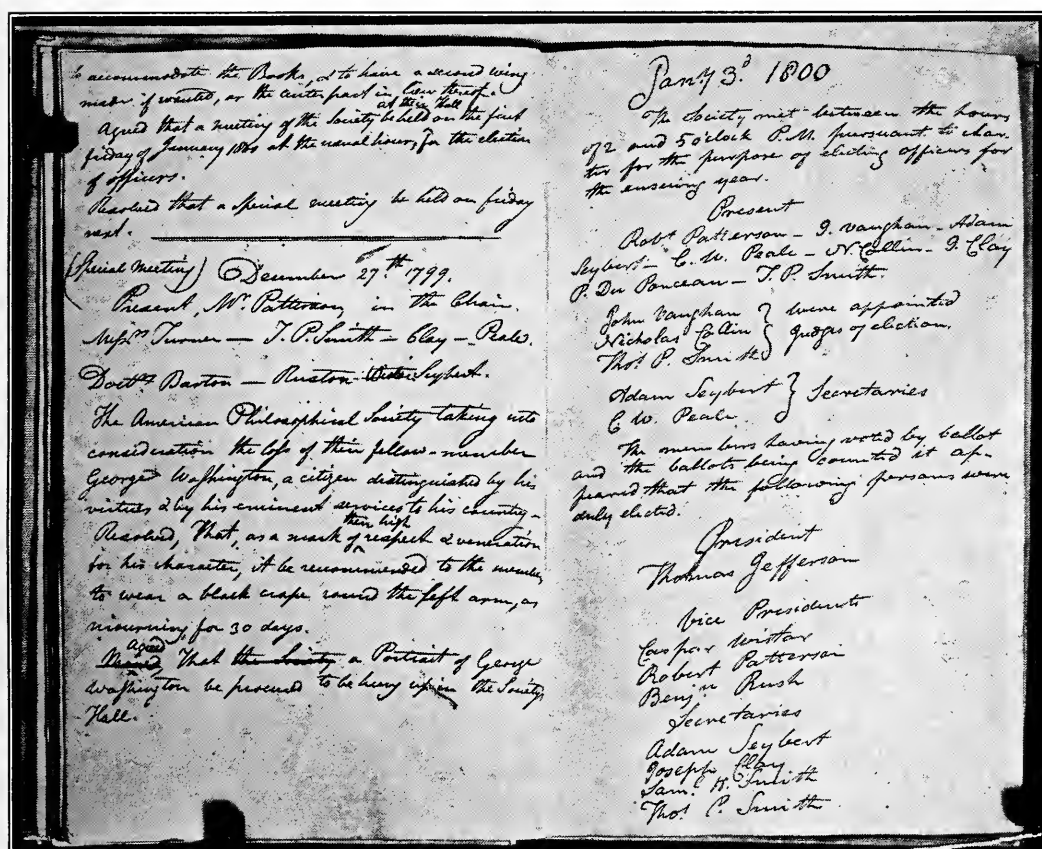 to accommodate the Books, & to have a second wing
made if wanted, or the centre part in lieu thereof.
at their Hall
Agreed that a meeting of the Society be held on the first
friday of January 1800 at the usual hours, for the election
of officers.
Resolved that a special meeting be held on friday
next.
(Special Meeting) December 27th 1799.
Present, Mr. Patterson, in the Chair.
Messrs Turner — T. P. Smith — Clay — Peale.
Doctrs Barton — Ruston — Wistar Seybert.
The American Philosophical Society taking into
consideration the loss of their fellow-member
George Washington, a citizen distinguished by his
virtues & by his eminent services to his country —
their high
Resolved, That, as a mark of respect & veneration
for his character, it be recommended to the members
to wear a black crape round the left arm, as
mourning, for 30 days.
agreed
Moved, That the Society a Portrait of George
Washington be procured to be hung up in the Society's
Hall.
Jany 3d 1800
The Society met between the hours
of 2 and 5 o'clock P.M. pursuant to char-
ter for the purpose of electing officers for
the ensuing year.
Present
Robt Patterson — J. Vaughan — Adam
Seybert — C. W. Peale — N. Collin — J. Clay
P. Du Ponceau — T. P. Smith.
John Vaughan } were appointed
Nicholas Collin } Judges of election.
Thos P. Smith }
Adam Seybert } Secretaries
C W. Peale
The members having voted by ballot
and the ballots being counted it ap-
peared that the following persons were
duly elected.
President
Thomas Jefferson
Vice Presidents
Caspar Wistar
Robert Patterson
Benjn Rush
Secretaries
Adam Seybert
Joseph Clay
Saml H. Smith
Thos P. Smith